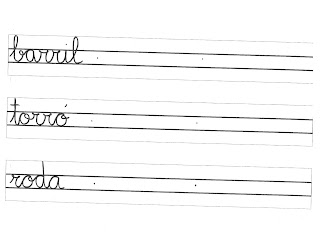 barril
torró
roda